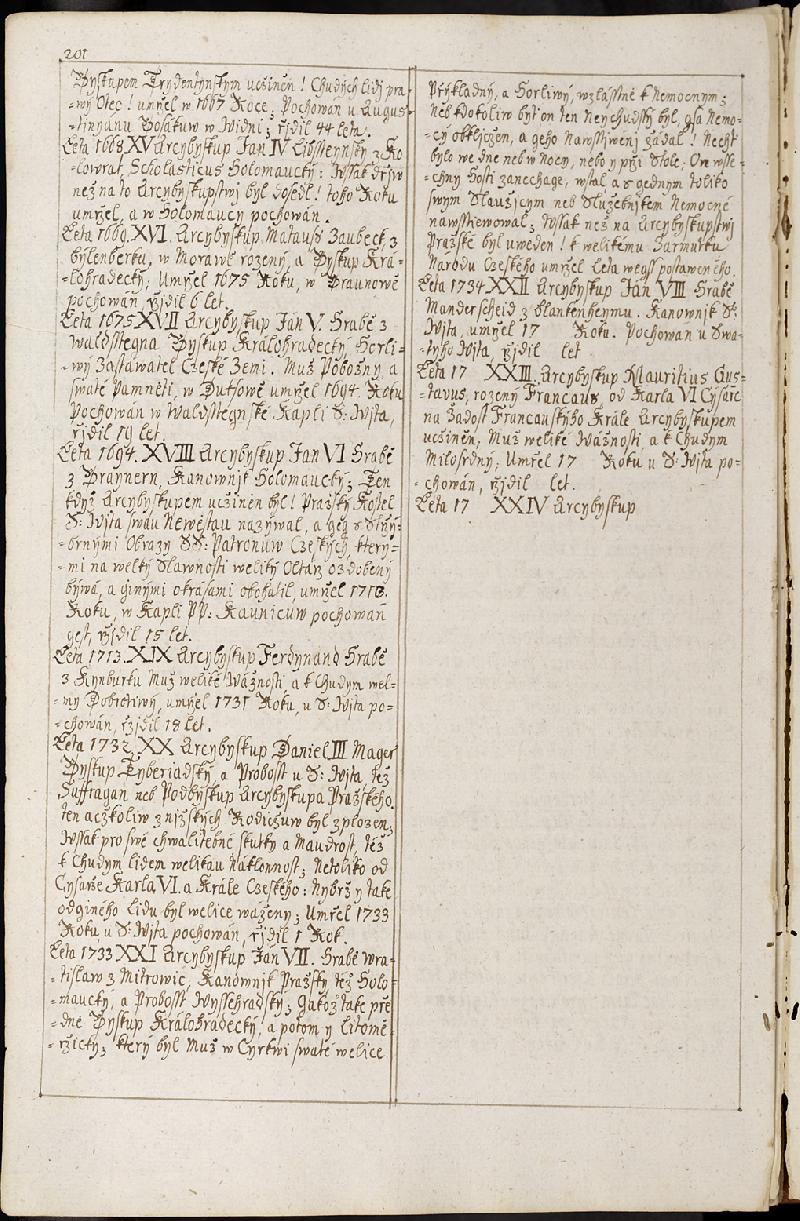 201
Byskupem Trydentynskym ucżiněn! Chudých lidj pra-
-wý Otec! umřel w 1667 Roce, Pochowán u Augus-
-tinyánu Bosákuw w Widni; řjdil 44 leta.
Leta 1668 XV Arcybyskup Jan IV Libsteynský z Ko-
-lowrat, Scholasticus Holomaucký: Wssak drjw
než na to Arcybyskupstwj byl dosedl! toho Roku
umřel, a w Holomaucy pochowán.
Leta 1669 XVI. Arcybyskup Matauss Zaubeck z
bylenberku, w Morawě rozený, a Byskup Krá-
-lohradecký; Umřel 1675 Roku, w Braunowě
pochowán, řjdil 6 let.
Leta 1675 XVII Arcybyskup Jan V. Hrabě z
Waldsstegna Byskup Králohradecký, Horli-
-wý Zastawatel Cżeské Zemi. Muž Pobožný a
swaté Pamněti, w Duchowě umřel 1694. Roku
Pochowán w Waldsstegnské Kapli S: Wjta,
řjdil 19 let.
Leta 1694. XVIII Arcybyskup Jan VI Hrabě
z Braynern, Kanownjk Holomaucký; Ten
když Arcybyskupem ucżiněn byl! Pražský Kostel
S: Wjta swau Newěstau nazýwal, a geg s Střj-
-brnými Obrazy SS: Patronuw Cżeských, který-
-mi na welký Slawnosti weliký Oltář ozdobený
býwá, a ginými okrásami obohatil, umřel 1713.
Roku, w Kapli PP: Kaunicuw pochowán
gest, řjdil 15 let.
Leta 1713. XIX Arcybyskup Ferdynand Hrabě
z Kynburku Muž weliké Wážnosti, a k Chudým wel-
-my Dobrotiwý, umřel 1731 Roku, u S: Wjta po-
-chowán, řjdil 18 let.
Leta 1732, XX Arcybyskup Daniel III Mager
Byskup Tyberiadský, a Probosst u S: Wjta, též
Suffragan neb Podbyskup Arcybyskupa Pražského,
ten acżkoliw z nizských Rodicżuw byl zplozen;
Wssak pro swé chwalitebné skutky a Maudrost, též
k Chudým lidem welikau Náklonnost; Netoliko od
Cysaře Karla VI. a Krále Cżeského: Nýbrž y také
od giného Lidu byl welice wážený; Umřel 1733
Roku u S: Wjta pochowán, řjdil 1 Rok.
Leta 1733 XXI Arcybyskup Jan VII. Hrabě Wra-
-tislaw z Mitrowic, Kanownjk Pražský též Holo-
-maucký, a Probosst Wyssehradský; Gakož také pře-
-dně Byskup Králohradecký! a potom y Litomě-
-řický; který byl Muž w Cyrkwi swaté welice
Přjkladný, a Horliwý, wzlásstně k Nemocnym;
Neb kdokoliw byl on ten Neychudssý byl, gsa Nemo-
-cý obkljcżen, a geho Nawsstjwenj žádal! Nechť
bylo we dne neb w Nocy, nebo y při Stole; On wsse-
-chny Hosti zanechage, wstal, a s gednym toliko
swým Slaužjcym neb Služebnjkem Nemocné
nawsstiewowal; Wssak než na Arcybyskupstwj
Pražské byl uweden! k welikému Zármutku
Národu Cżeského umřel Leta wegss postaweného.
Leta 1734. XXII Arcybyskup Jan VIII Hrabě
Manderscheid z blankenheymu. Kanownjk S:
Wjta, umřel 17 Roku. Pochowan u Swa-
-tyho Wjta, řjdil let.
Leta 17 XXIII. Arcybyskup Mauritius Gus-
-tavus, rozený Francauz, od Karla VI Cysaře
na Žadost Francauzskýho Krále Arcybyskupem
ucżiněn; Muž weliké Wážnosti a k Chudým
Milosrdný; Umřel 17 Roku u S: Wjta po-
-chowán, řjdil let.
Leta 17 XXIV Arcybyskup